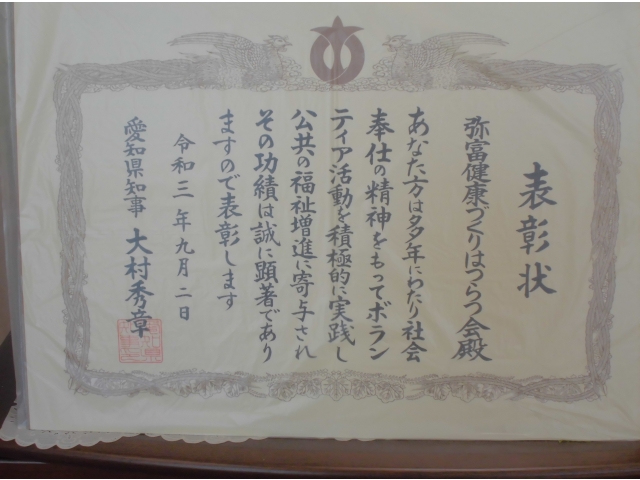 表彰状
弥富健康づくりはつらつ会殿
あなた方は多年にわたり社会
奉仕の精神をもってボラン
ティア活動を積極的に実践し
公共の福祉増進に寄与され
その功績は誠に顕著であり
ますので表彰します
令和三年九月二日
愛知県知事 大村秀章